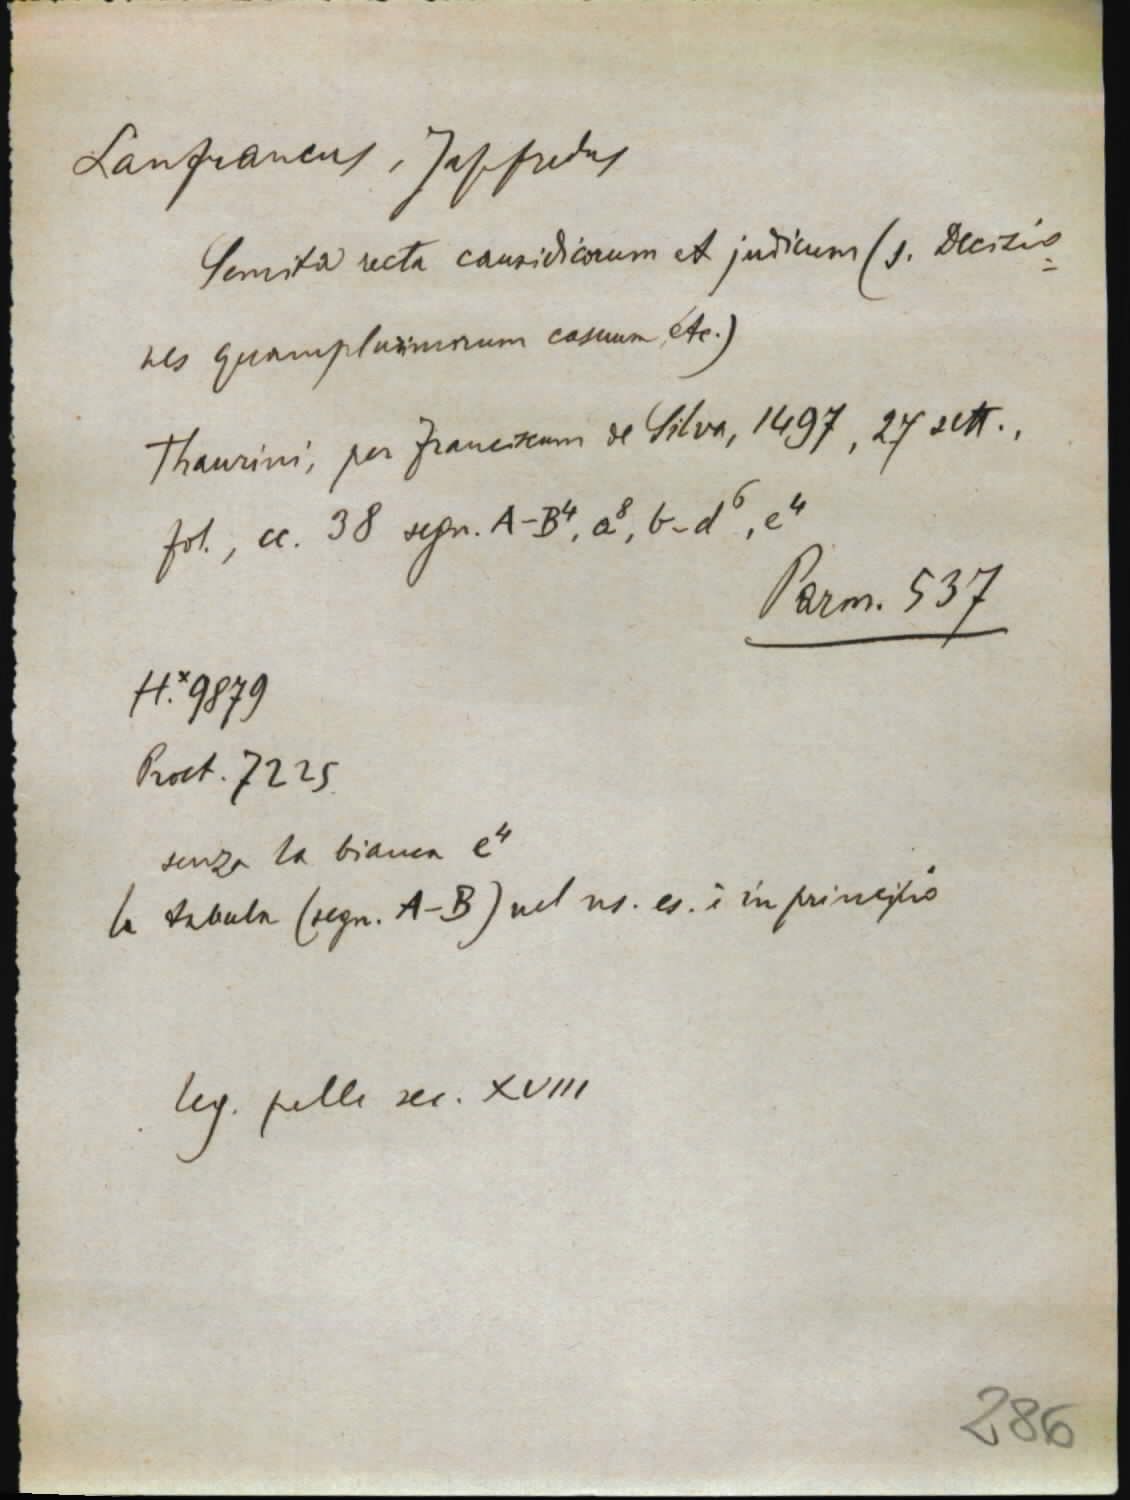 Lanfrancus, Jaffredus
Semita recta causidicorum et judicum (s. Decisio=
nes quamplurimorum casuum etc.)
Thaurini, per Franciscum de Silva, 1497, 27 sett.,
fol., cc. 38 segn. A-B⁴, a⁸, b-d⁶, e⁴
Parm. 537
H.ˣ 9879
Proct. 7225
senza la bianca e⁴
la tabula (segn. A-B) nel ns. es. è in principio
leg. pelle sec. XVIII
286